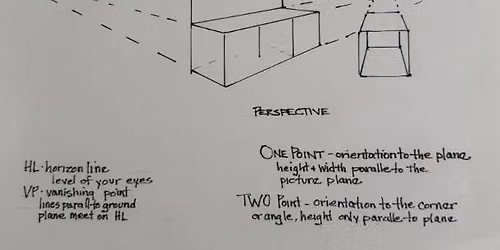 PERSPECTIVE
HL - horizon line
level of your eyes
VP - vanishing point
lines parallel to ground
plane meet on HL
ONE POINT - orientation to the plane,
height + width parallel to the
picture plane
TWO POINT - orientation to the corner
or angle, height only parallel to plane